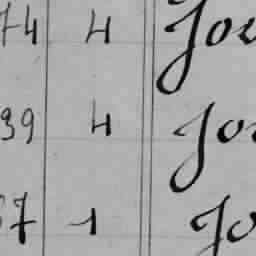 74 4 Jou
39 4 Jo
37 1 Jo